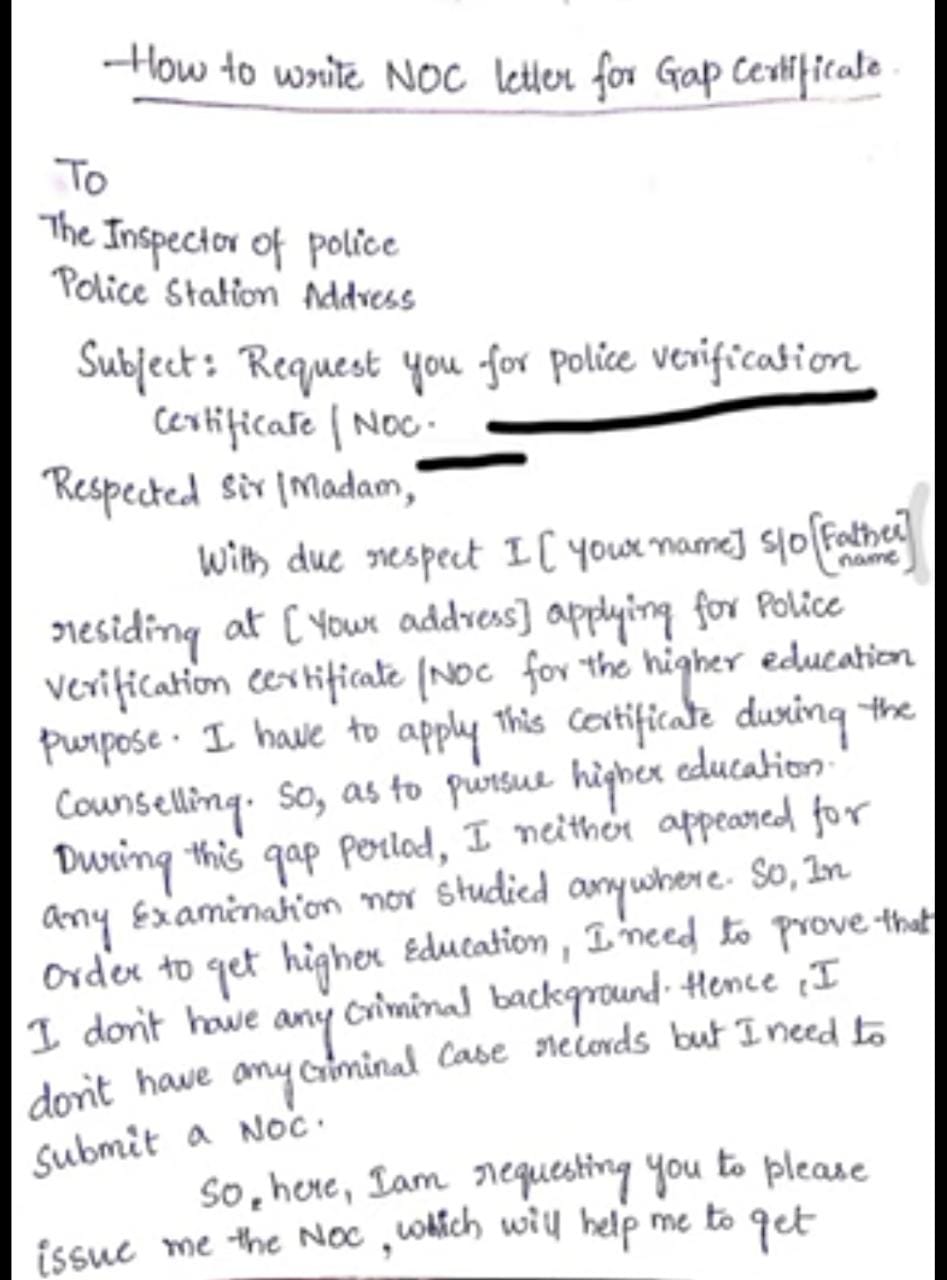 How to write NOC letter for Gap Certificate.
To
The Inspector of police
Police Station Address
Subject: Request you for police verification
Certificate / NOC.
Respected Sir / Madam,
With due respect I [your name] S/O [Father name]
residing at [Your address] applying for Police
verification certificate / NOC for the higher education
purpose. I have to apply this certificate during the
Counselling. So, as to pursue higher education.
During this gap period, I neither appeared for
any Examination nor studied anywhere. So, In
order to get higher Education, I need to prove that
I don't have any criminal background. Hence, I
don't have any criminal Case records but I need to
Submit a NOC.
So, here, I am requesting you to please
issue me the NOC, which will help me to get